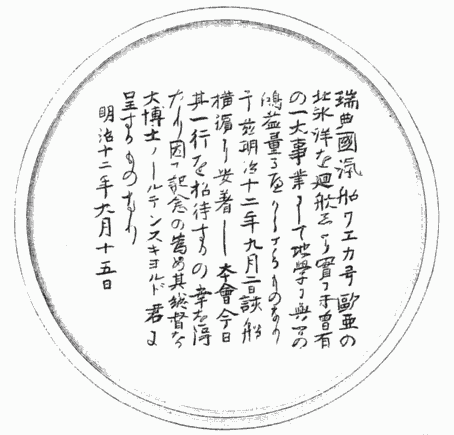 瑞典國滊船ワエカ号歐亜の
北氷洋を廻航せし實ニ未曾有
の一大事業にして地學に與ふるの
鴻益量る可からさるものなり
于茲明治十二年九月二日該船
横濱に安着し本會今日
其一行を招待するの幸を得
たり因て記念の為め其総督なる
大博士ノールデンスキヨルド君に
呈するものなり
明治十二年九月十五日